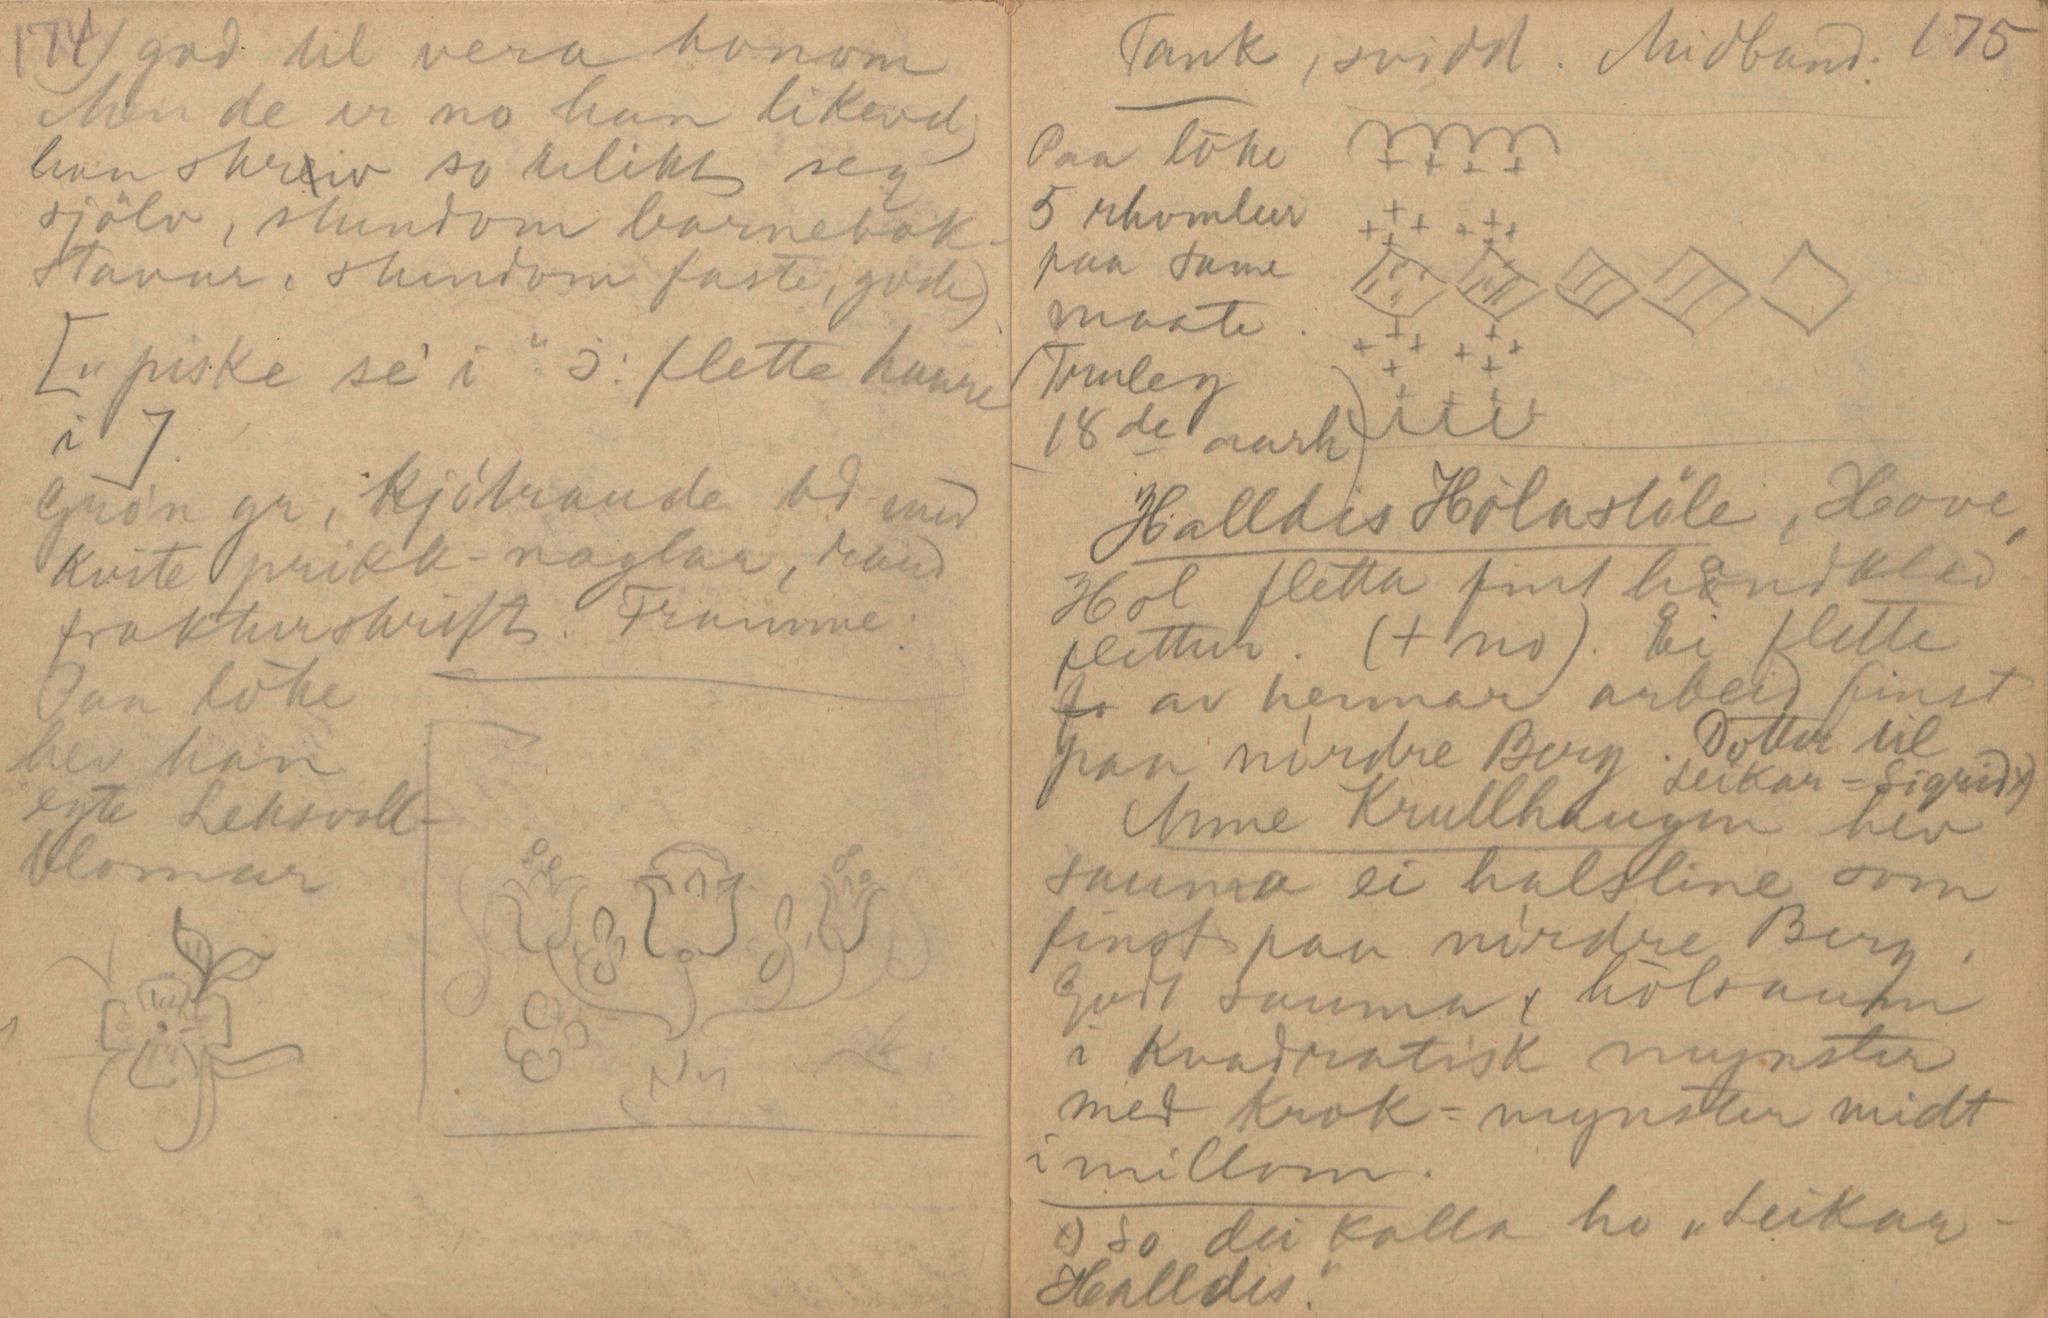 174) god til vera honom
Men de er no han likevel,
han skreiv so ulikt seg
sjölv, stundom barnebok-
stavar, stundom faste, gode)
["piske se i" ɔ: flette haare
i].
Grön gr, kjötraude bd med
kvite prikk-naglar, raud
frakturskrift. Framme:
Paa löke
hev han
egte Leksvoll-
blomar
Tank, svidd. Midband: 175
Paa löke
5 rhombur
paa same
maate.
(Truleg
18de aarh)
Halldis Hölastöle, Hove,
Hol fletta fint håndklæd
flettur. (+ no). Ei flette
av hennar arbeid finst
paa nördre Berg. Dotter til
Leikar-Sigrid x)
Anne Krullhaugen hev
sauma ei halsline som
finst paa nördre Berg.
Godt sauma, hölsaum
i kvadratisk mynster
med krok-mynster midt
imillom.
x) So dei kalla ho "Leikar-
Halldis".